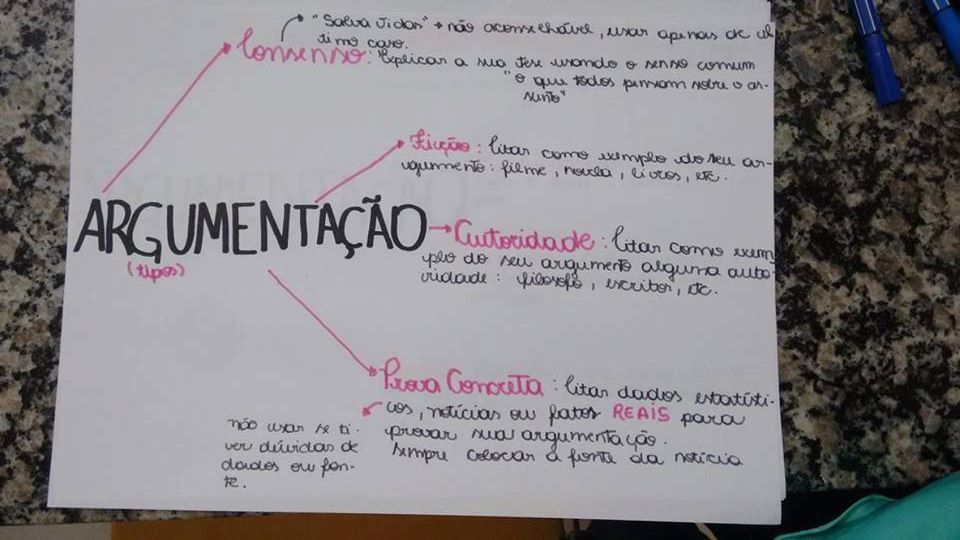 "Salva Vidas" → não aconselhável, usar apenas de úl
timo caso.
Consenso: Explicar a sua tese usando o senso comum
"o que todos pensam sobre o as-
sunto"
Ficção: Citar como exemplo do seu ar-
gumento: filme, novela, livros, etc.
ARGUMENTAÇÃO
(tipos)
Autoridade: Citar como exem
plo do seu argumento alguma auto-
ridade: filosofo, escritor, etc.
Prova Concreta: Citar dados estatísti-
cos, notícias ou fatos REAIS para
provar sua argumentação.
Sempre colocar a fonte da notícia
não usar se ti-
ver dúvidas de
dados ou fon-
te.